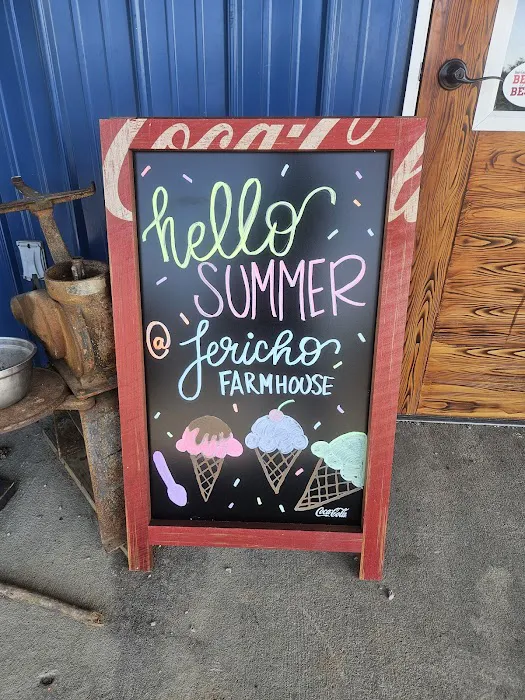 Coca-C
hello
SUMMER
@ Jericho
FARMHOUSE
Coca-Cola
BE
BES